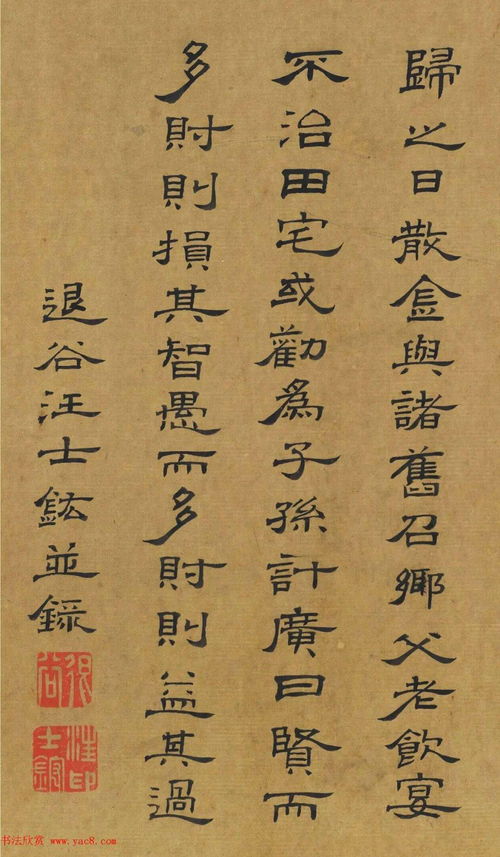 歸之日散金與諸舊召鄉父老飲宴
不治田宅或勸爲子孫計廣曰賢而
多財則損其智愚而多財則益其過
退谷汪士鋐並錄
退谷
汪士鋐印
书法欣赏 www.yac8.com